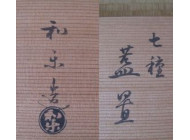 七種
蓋置
和楽造